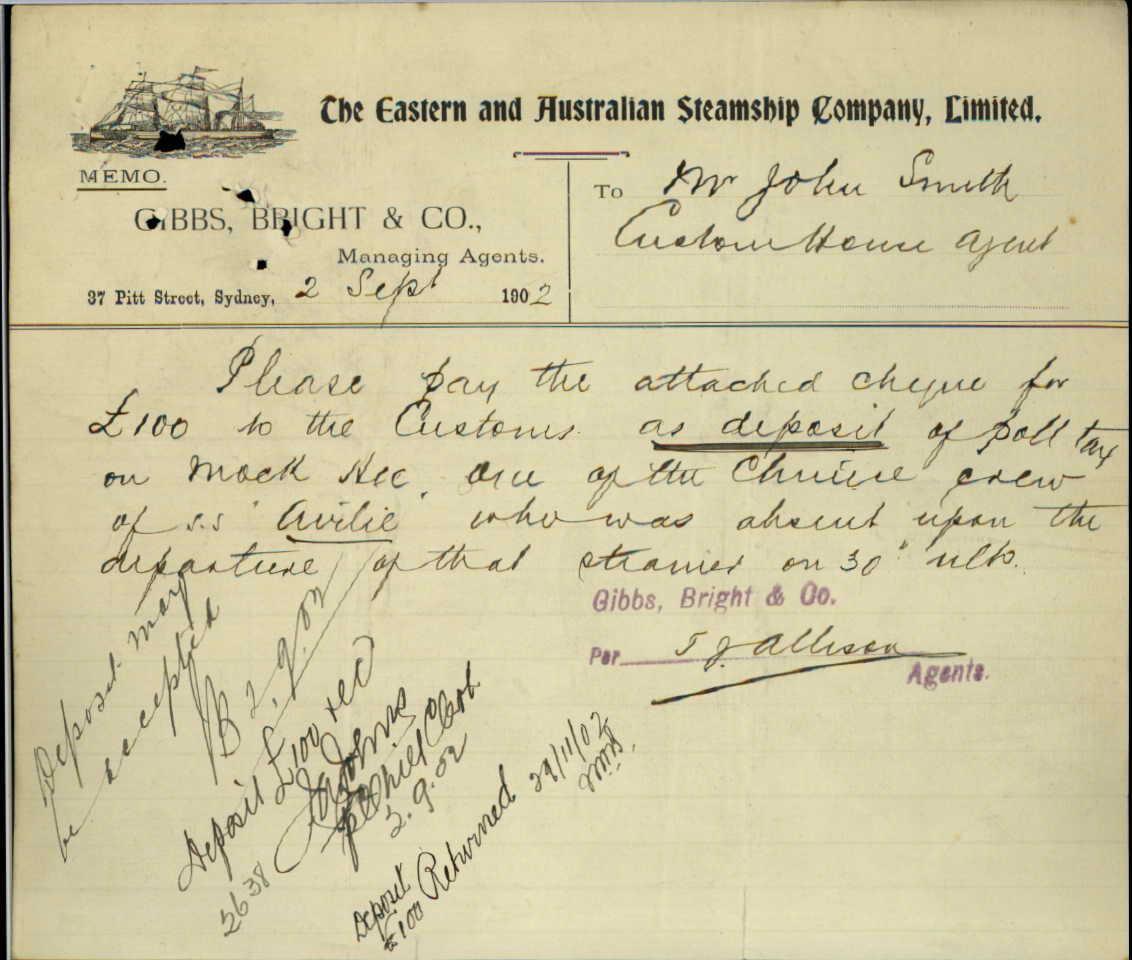 The Eastern and Australian Steamship Company, Limited.
MEMO.
GIBBS, BRIGHT & CO.,
Managing Agents.
37 Pitt Street, Sydney, 2 Sept 1902
To Mr John Smith
Custom House Agent
Please pay the attached cheque for
£100 to the Customs as deposit of poll tax
on Mock Hee, one of the Chinese crew
of s.s "Airlie" who was absent upon the
departure of that steamer on 30" ulto.
Gibbs, Bright & Co.
Per T J Allison
Agents.
Deposit may
be accepted
2.9.02
Deposit £100 rec
2.9.02
2638
Deposit
£100 Returned 29/11/02